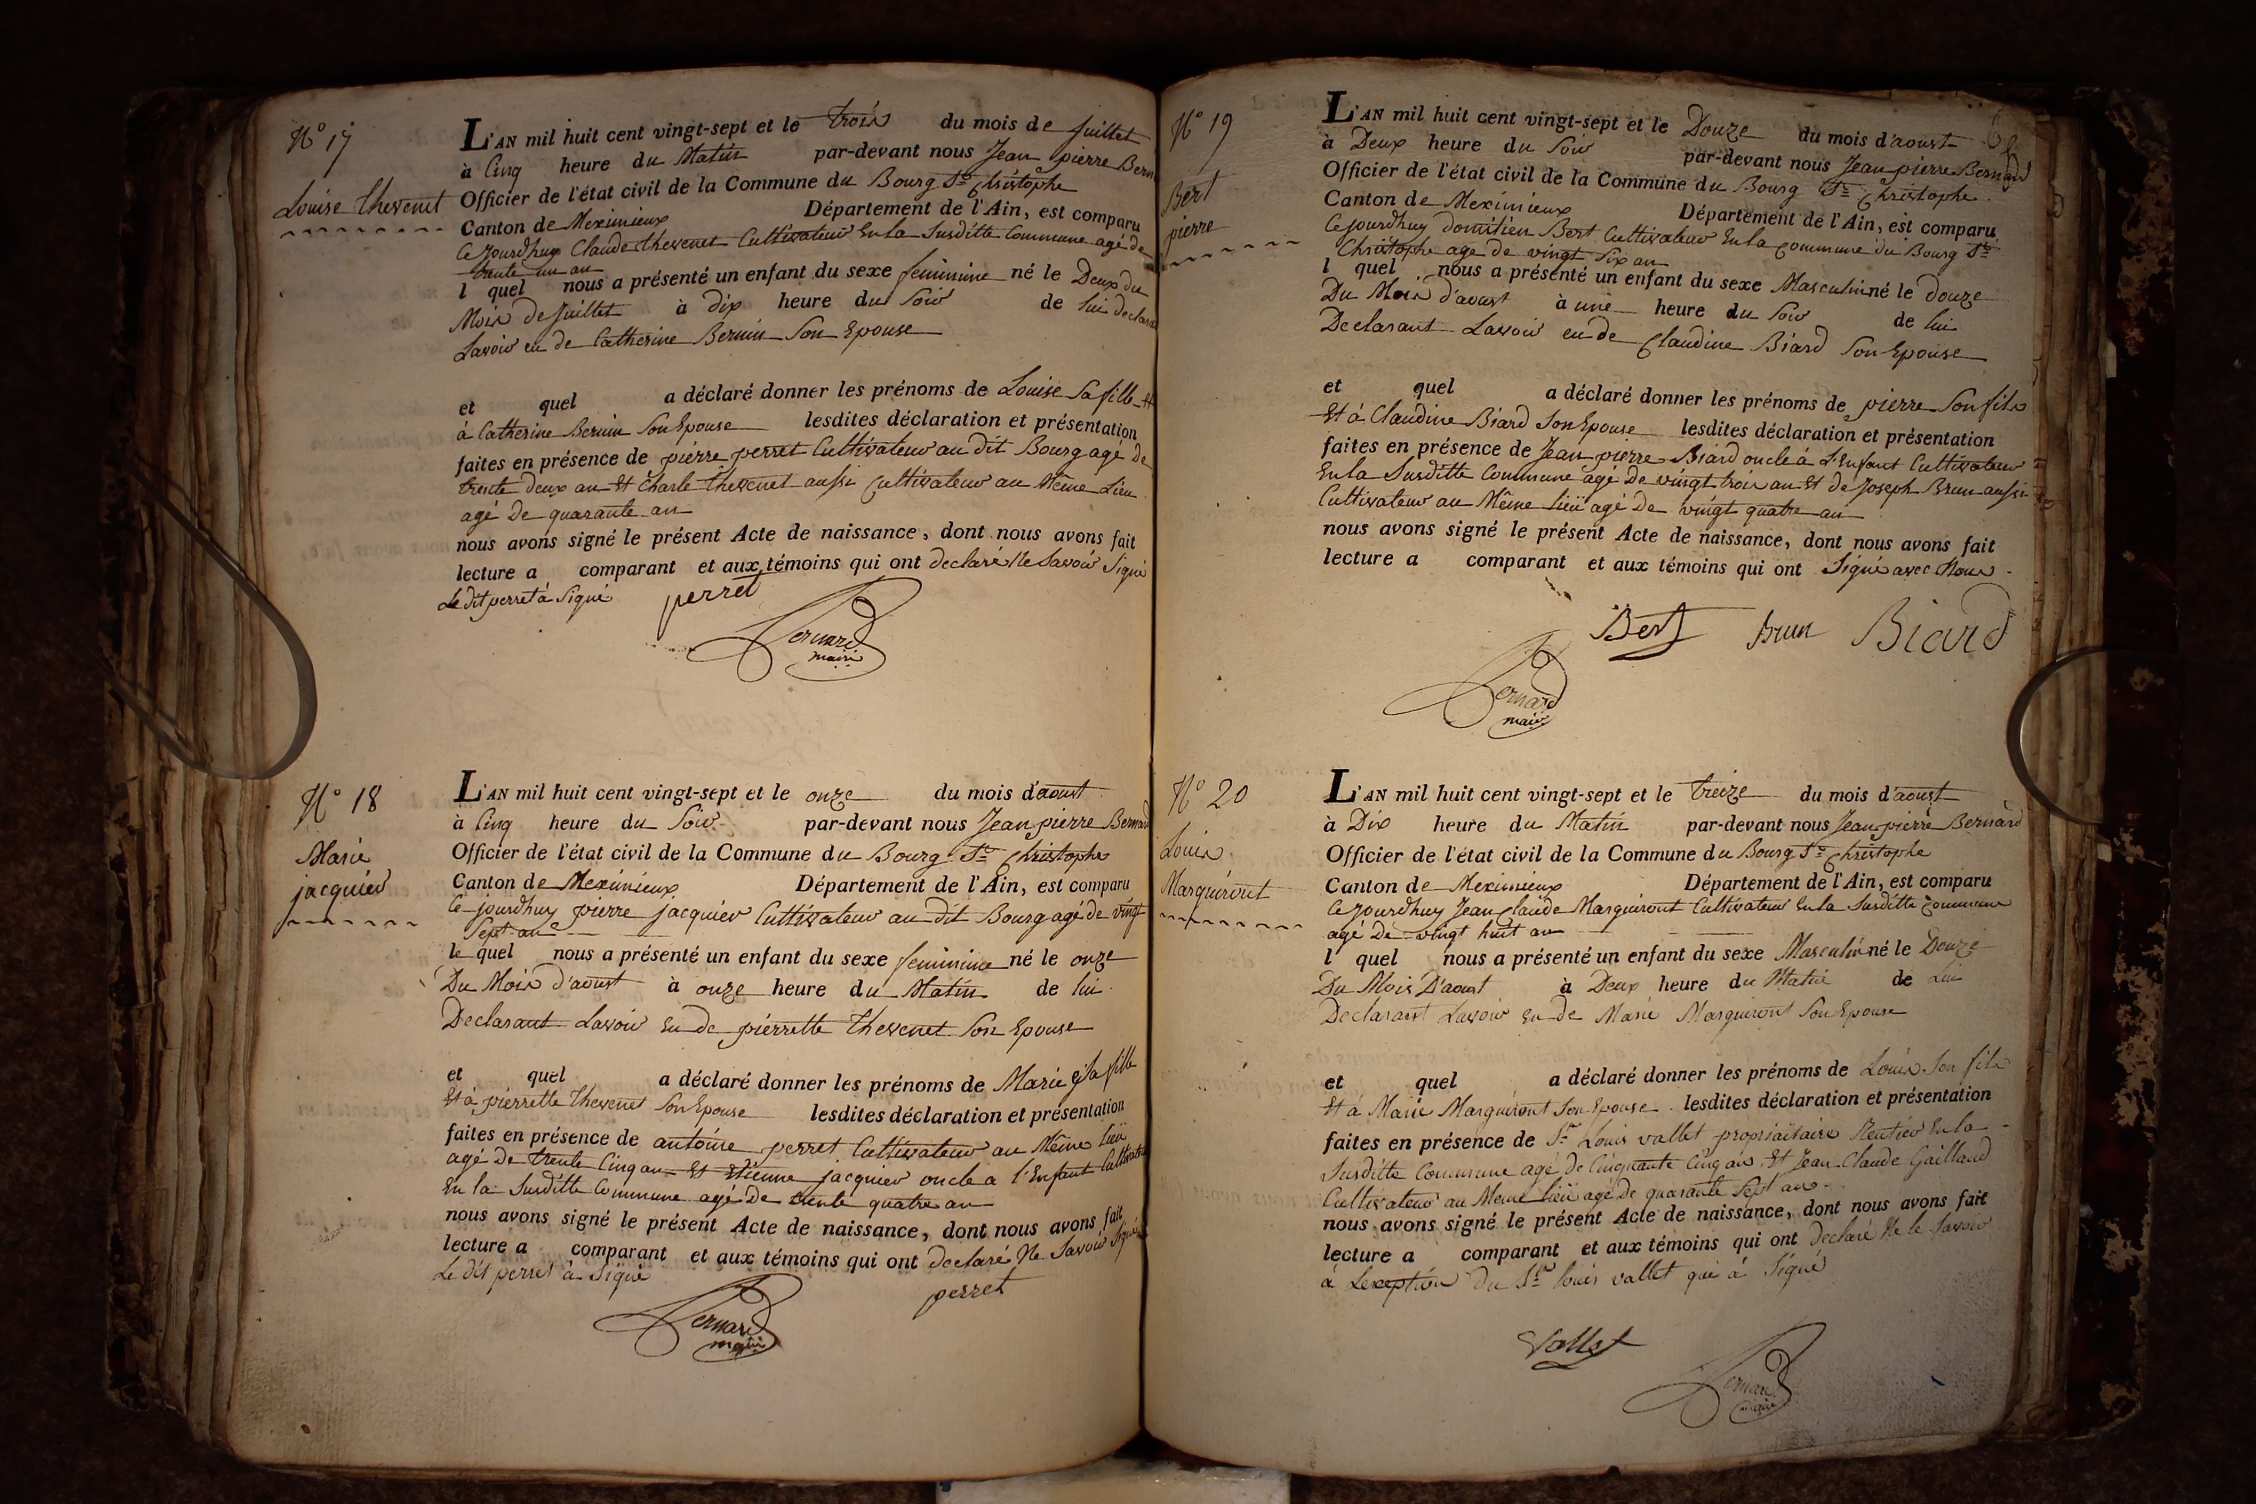 N° 17
Louise Thevenet
L'AN mil huit cent vingt-sept et le trois du mois de juillet
à Cinq heure du Matin par-devant nous Jean pierre Bern
Officier de l'état civil de la Commune du Bourg St Christophe
Canton de Meximieux Département de l'Ain, est comparu
Ce jourdhuy Claude Thevenet Cultivateur En la Susditte Commune agé de
trente un an
l quel nous a présenté un enfant du sexe feminine né le Deux du
Mois de Juillet à dix heure du Soir de lui declara
Lavoir eu de Catherine Bernin Son Epouse
et quel a déclaré donner les prénoms de Louise Sa fille Et
à Catherine Bernin Son Epouse lesdites déclaration et présentation
faites en présence de pierre perret Cultivateur au dit Bourg agé De
trente deux an Et Charle Thevenet aussi Cultivateur au Même Lieu
agé De quarante an
nous avons signé le présent Acte de naissance, dont nous avons fait
lecture a comparant et aux témoins qui ont declaré Ne Savoir Signé
Le dit perret a Signé perret
Bernard
maire
N° 18
Marie
jacquier
L'AN mil huit cent vingt-sept et le onze du mois d'aoust
à Cinq heure du Soir par-devant nous Jean pierre Bernard
Officier de l'état civil de la Commune du Bourg St Christophe
Canton de Meximieux Département de l'Ain, est comparu
Ce jourdhuy pierre jacquier Cultivateur au dit Bourg agé de vingt
Sept an
le quel nous a présenté un enfant du sexe feminine né le onze
Du Mois d'aoust à onze heure du Matin de lui
Declarant Lavoir Eu De pierrette Thevenet Son Epouse
et quel a déclaré donner les prénoms de Marie Sa fille
Et à pierrette Thevenet Son Epouse lesdites déclaration et présentation
faites en présence de antoine perret Cultivateur au Même lieü
agé De trente Cinq an Et Etienne jacquier oncle a l'Enfant Cultivate
En la Susditte Commune agé De trente quatre an
nous avons signé le présent Acte de naissance, dont nous avons fait
lecture a comparant et aux témoins qui ont declaré Ne Savoir Signé
Le dit perret à Signé perret
Bernard
maire
N° 19
Bert
pierre
L'AN mil huit cent vingt-sept et le Douze du mois d'aoust
à Deux heure du Soir par-devant nous Jean pierre Bernard
Officier de l'état civil de la Commune du Bourg St Christophe
Canton de Meximieux Département de l'Ain, est comparu
Ce jourdhuy domitien Bert Cultivateur En la Commune du Bourg St
Christophe age de vingt Six an
l quel nous a présenté un enfant du sexe Masculin né le douze
Du Mois d'aoust à une heure du Soir de lui
Declarant Lavoir eu de Claudine Biard Son Epouse
et quel a déclaré donner les prénoms de pierre Son fils
Et à Claudine Biard Son Epouse lesdites déclaration et présentation
faites en présence de Jean pierre Biard oncle à L'Enfant Cultivateur
En la Susditte Commune agé De vingt trois an Et de Joseph Brun aussi
Cultivateur au Même lieü agé De vingt quatre an
nous avons signé le présent Acte de naissance, dont nous avons fait
lecture a comparant et aux témoins qui ont Signé avec Nous
Bert Brun Biard
Bernard
maire
N° 20
Louis
Marguiront
L'AN mil huit cent vingt-sept et le treize du mois d'aoust
à Dix heure du Matin par-devant nous Jean pierre Bernard
Officier de l'état civil de la Commune du Bourg St Christophe
Canton de Meximieux Département de l'Ain, est comparu
Ce jourdhuy Jean Claude Marguiront Cultivateur En la Susditte Commune
agé De vingt huit an
l quel nous a présenté un enfant du sexe Masculin né le Douze
Du Mois D'aoust à Deux heure du Matin de Lui
Declarant Lavoir Eu De Marie Marguiront Son Epouse
et quel a déclaré donner les prénoms de Louis Son fils
Et à Marie Marguiront Son Epouse lesdites déclaration et présentation
faites en présence de Sr Louis vallet propriaitaire Rentier En la
Susditte Commune agé De Cinquante Cinq ans Et Jean Claude Gaillard
Cultivateur au Meme lieü agé De quarante Sept an
nous avons signé le présent Acte de naissance, dont nous avons fait
lecture a comparant et aux témoins qui ont declaré Ne le Savoir
à Lexception Du Sr louis vallet qui à Signé
Vallet
Bernard
maire